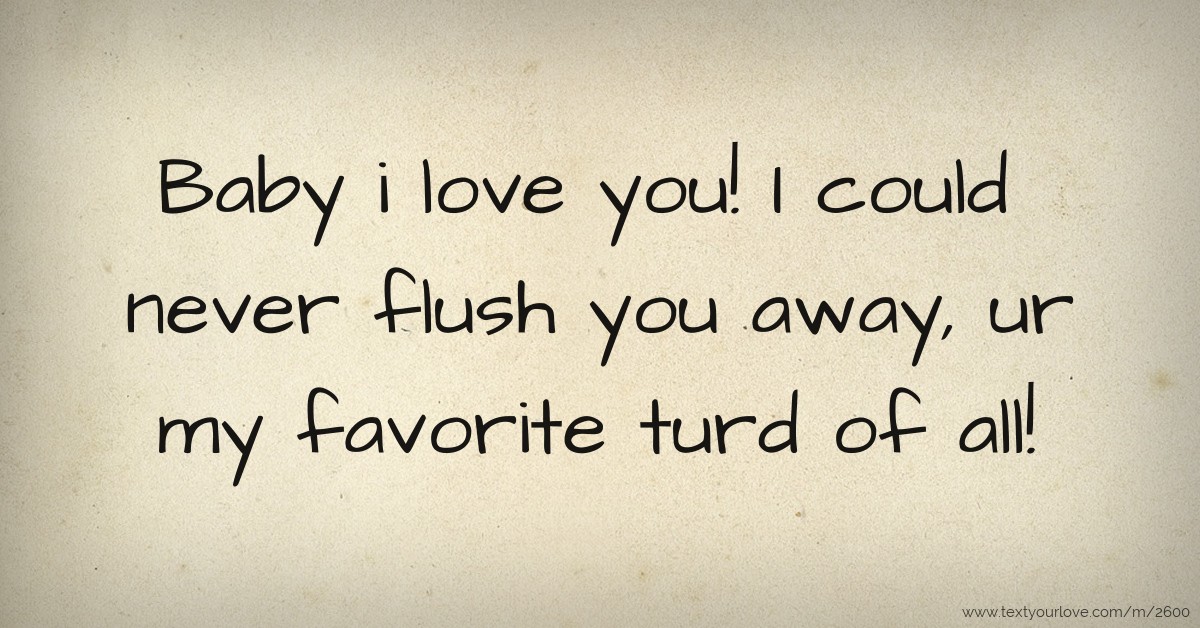 Baby i love you! I could
never flush you away, ur
my favorite turd of all!
www.textyourlove.com/m/2600